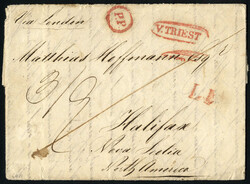 Via London
PP
V. TRIEST
Matthias Hoffmann Esqr
Halifax
Nova Scotia
North America